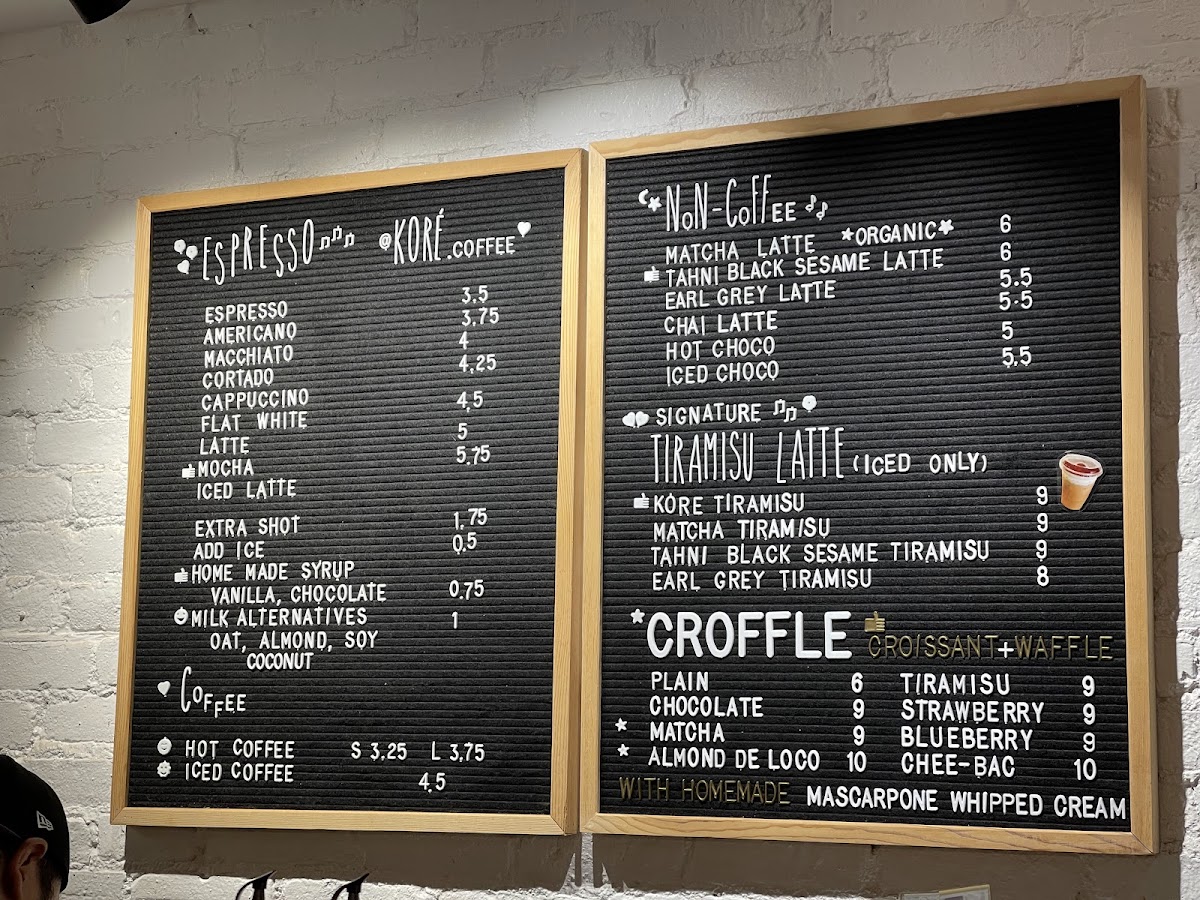 ESPRESSO @KORÉ.COFFEE
ESPRESSO 3.5
AMERICANO 3.75
MACCHIATO 4
CORTADO 4.25
CAPPUCCINO
FLAT WHITE 4.5
LATTE 5
MOCHA 5.75
ICED LATTE
EXTRA SHOT 1.75
ADD ICE 0.5
HOME MADE SYRUP
VANILLA, CHOCOLATE 0.75
MILK ALTERNATIVES 1
OAT, ALMOND, SOY
COCONUT
COFFEE
HOT COFFEE S 3.25 L 3.75
ICED COFFEE 4.5
NON-COFFEE
MATCHA LATTE *ORGANIC* 6
TAHNI BLACK SESAME LATTE 6
EARL GREY LATTE 5.5
CHAI LATTE 5.5
HOT CHOCO 5
ICED CHOCO 5.5
SIGNATURE
TIRAMISU LATTE (ICED ONLY)
KORE TIRAMISU 9
MATCHA TIRAMISU 9
TAHNI BLACK SESAME TIRAMISU 9
EARL GREY TIRAMISU 8
CROFFLE CROISSANT+WAFFLE
PLAIN 6 TIRAMISU 9
CHOCOLATE 9 STRAWBERRY 9
MATCHA 9 BLUEBERRY 9
ALMOND DE LOCO 10 CHEE-BAC 10
WITH HOMEMADE MASCARPONE WHIPPED CREAM